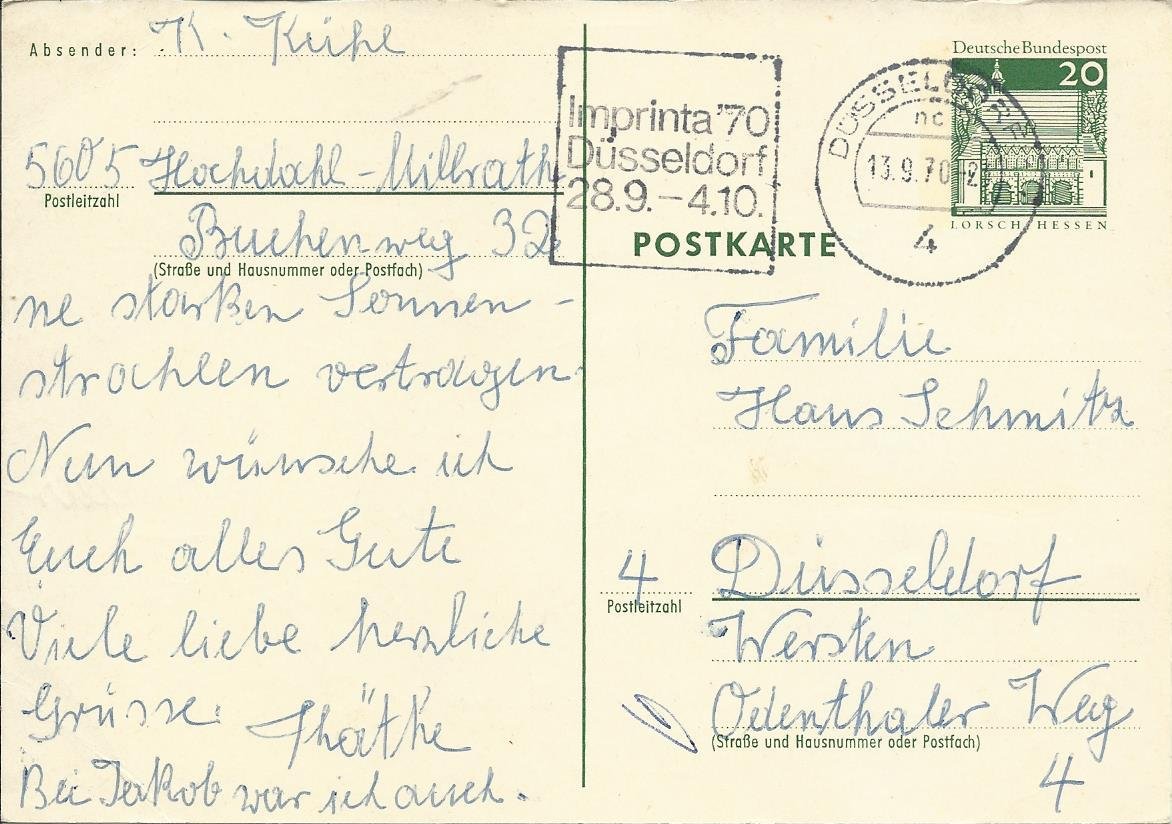 Absender: K. Kühl
5605 Hochdahl-Millrath
Postleitzahl
Buchenweg 32
(Straße und Hausnummer oder Postfach)
ne starken Sonnen-
strahlen vertragen.
Nun wünsche ich
Euch alles Gute
Viele liebe herzliche
Grüsse
Bei Jakob war ich auch.
Imprinta '70
Düsseldorf
28.9.–4.10.
POSTKARTE
DÜSSELDORF
nc
13.9.70
4
Deutsche Bundespost
20
LORSCH/HESSEN
Familie
Hans Schmitz
4 Düsseldorf
Postleitzahl
Wersten
Odenthaler Weg
(Straße und Hausnummer oder Postfach)
4